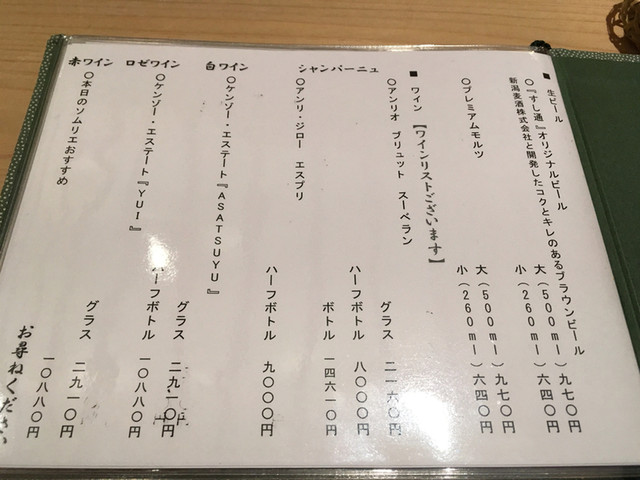 ■ 生ビール
○『すし通』オリジナルビール
新潟麦酒株式会社と開発したコクとキレのあるブラウンビール
大(500ml)九七〇円
小(260ml)六四〇円
○プレミアムモルツ
大(500ml)九七〇円
小(260ml)六四〇円
■ ワイン 【ワインリストございます】
シャンパーニュ
○アンリオ ブリュット スーベラン
グラス 二一六〇円
ハーフボトル 八〇〇〇円
ボトル 一四六一〇円
○アンリ・ジロー エスプリ
ハーフボトル 九〇〇〇円
白ワイン
○ケンゾー・エステート『ASATSUYU』
グラス 二九一〇円
ハーフボトル 一〇八八〇円
ロゼワイン
○ケンゾー・エステート『YUI』
グラス 二九一〇円
一〇八八〇円
赤ワイン
○本日のソムリエおすすめ
お尋ねください